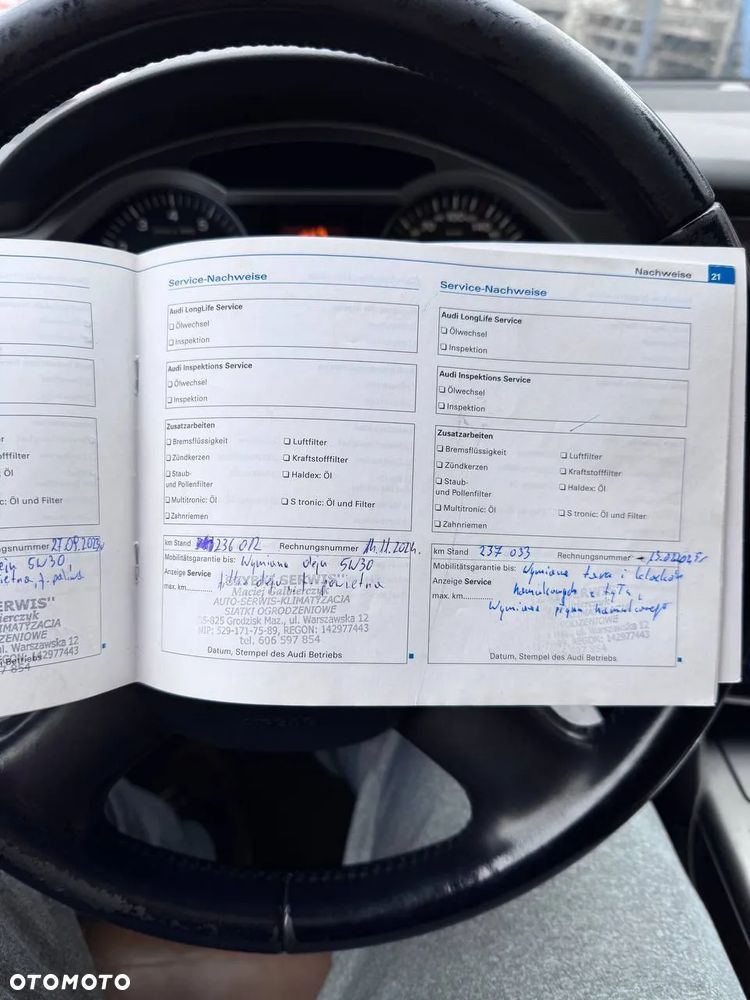 Nachweise 21
Service-Nachweise
Audi LongLife Service
Ölwechsel
Inspektion
Audi Inspektions Service
Ölwechsel
Inspektion
Zusatzarbeiten
Bremsflüssigkeit
Luftfilter
Zündkerzen
Kraftstofffilter
Staub-
und Pollenfilter
Haldex: Öl
Multitronic: Öl
S tronic: Öl und Filter
Zahnriemen
km Stand 236 012 Rechnungsnummer 14.11.2024r.
Mobilitätsgarantie bis: Wymiana oleju 5W30
Anzeige Service filtr oleju, f. powietrza
max. km
SERWIS"
Maciej Galbierczyk
AUTO-SERWIS-KLIMATYZACJA
SIATKI OGRODZENIOWE
05-825 Grodzisk Maz., ul. Warszawska 12
NIP: 529-171-75-89, REGON: 142977443
tel. 606 597 854
Datum, Stempel des Audi Betriebs
Service-Nachweise
Audi LongLife Service
Ölwechsel
Inspektion
Audi Inspektions Service
Ölwechsel
Inspektion
Zusatzarbeiten
Bremsflüssigkeit
Luftfilter
Zündkerzen
Kraftstofffilter
Staub-
und Pollenfilter
Haldex: Öl
Multitronic: Öl
S tronic: Öl und Filter
Zahnriemen
km Stand 237 033 Rechnungsnummer
Mobilitätsgarantie bis: Wymiana tarcz i klocków
Anzeige Service hamulcowych z tyłu,
max. km Wymiana płynu hamulcowego
Datum, Stempel des Audi Betriebs
filter
: Öl
ic: Öl und Filter
ngsnummer 27.09.2023r
oleju 5W30,
SERWIS"
ul. Warszawska 12
REGON: 142977443
97 854
Betriebs
OTOMOTO